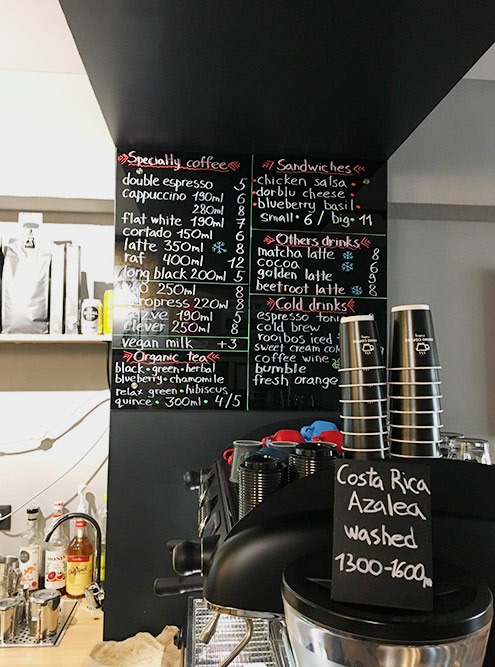 Specialty coffee
double espresso 5
cappuccino 190ml 6
280ml 8
flat white 190ml 7
cortado 150ml 6
latte 350ml 8
raf 400ml 12
long black 200ml 5
250ml 8
220ml 8
8
clever 250ml 8
vegan milk +3
Organic tea
black • green • herbal
blueberry • chamomile
relax green • hibiscus
quince • 300ml • 4/5
Sandwiches
chicken salsa
dorblu cheese
blueberry basil
small • 6 / big • 11
Others drinks
matcha latte 8
cocoa 6
golden latte 8
beetroot latte 8
Cold drinks
espresso
cold brew
rooibos iced
sweet cream
coffee wine
bumble
fresh orange
Costa Rica
Azalea
washed
1300-1600m